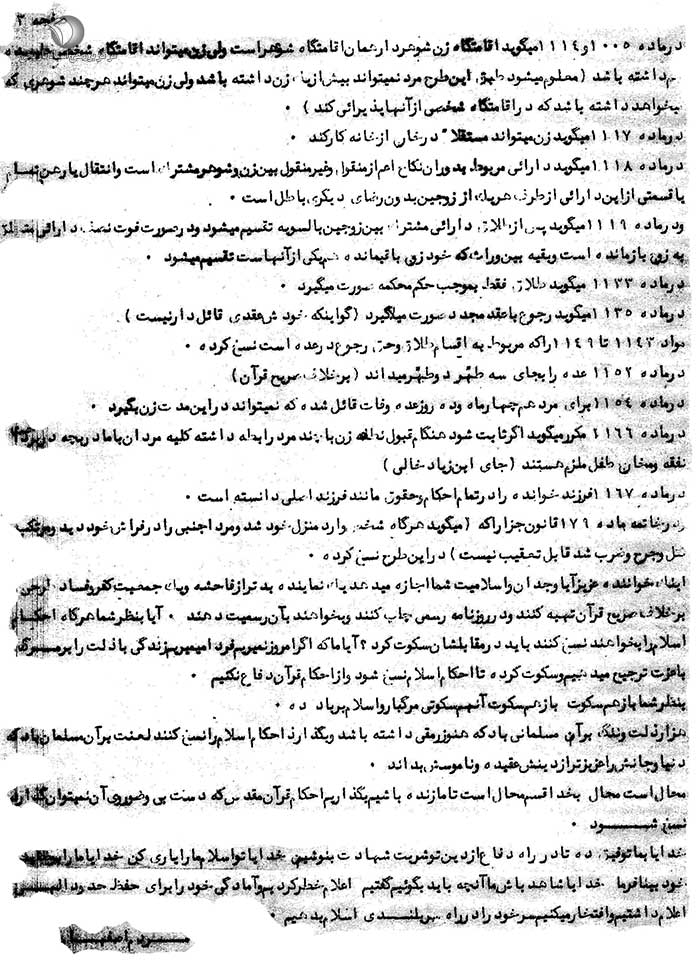 صفحه ۳
درماده ۱۰۰۵ و ۱۱۱۴ میگوید اقامتگاه زن شوهردار همان اقامتگاه شوهر است ولی زن میتواند اقامتگاه شخصی
هم داشته باشد (معلوم میشود طبق این طرح مرد نمیتواند بیش از یک زن داشته باشد ولی زن میتواند هر چند شوهری که
بخواهد داشته باشد که در اقامتگاه شخصی از آنها پذیرائی کند) ۰
درماده ۱۱۱۷ میگوید زن میتواند مستقلا" در خارج از خانه کار کند ۰
درماده ۱۱۱۸ میگوید دارائی مربوط بدوران نکاح اعم از منقول و غیر منقول بین زن و شوهر مشترک است و انتقال یا رهن تمام
یا قسمتی از این دارائی از طرف هر یک از زوجین بدون رضای دیگری باطل است ۰
و در ماده ۱۱۱۹ میگوید پس از طلاق دارائی مشترک بین زوجین بالسویه تقسیم میشود و در صورت فوت نصف دارائی متعلق
به زوج بازمانده است و بقیه بین وراث که خود زوج باقیمانده هم یکی از آنهاست تقسیم میشود ۰
درماده ۱۱۳۳ میگوید طلاق فقط بموجب حکم محکمه صورت میگیرد ۰
درماده ۱۱۳۵ میگوید رجوع با عقد مجدد صورت میگیرد (گو اینکه خودش عقدی قائل دار نیست)
مواد ۱۱۴۳ تا ۱۱۴۹ را که مربوط به اقسام طلاق و حق رجوع در عده است نسخ کرده ۰
درماده ۱۱۵۲ عده را بجای سه طهر دو طهر میداند (بر خلاف صریح قرآن)
درماده ۱۱۵۴ برای مرد هم چهار ماه و ده روز عده وفات قائل شده که نمیتواند در این مدت زن بگیرد ۰
درماده ۱۱۶۶ مکرر میگوید اگر ثابت شود هنگام قبول نطفه زن با چند مرد رابطه داشته کلیه مردان با مادر بچه در
نفقه و مخارج طفل ملزم هستند (جای این زیاد خالی)
درماده ۱۱۶۷ فرزند خوانده را در تمام احکام و حقوق مانند فرزند اصلی دانسته است ۰
در خاتمه ماده ۱۷۹ قانون جزا را که (میگوید هرگاه شخصی وارد منزل خود شد و مرد اجنبی را در فراش خود دید و مرتکب
قتل و جرح و ضرب شد قابل تعقیب نیست) در این طرح نسخ کرده ۰
اینک خواننده عزیز آیا وجدان و اسلامیت شما اجازه میدهد یک نماینده بدتر از فاحشه و یک جمعیت کفر و فساد طرحی
بر خلاف صریح قرآن تهیه کنند و در روزنامه رسمی چاپ کنند و بخواهند بآن رسمیت دهند ۰ آیا بنظر شما هرگاه احکام
اسلام را بخواهند نسخ کنند باید در مقابلشان سکوت کرد؟ آیا ما که اگر امروز نمیریم فردا میمیریم زندگی با ذلت را بر مرگ
با عزت ترجیح میدهیم و سکوت کرده تا احکام اسلام نسخ شود و از احکام قرآن دفاع نکنیم ۰
بنظر شما باز هم سکوت باز هم سکوت آنهم سکوتی مرگبار و اسلام بر باد ده ۰
هزار ذلت و ننگ بر آن مسلمانی باد که هنوز رمقی داشته باشد و بگذارد احکام اسلام را نسخ کنند لعنت بر آن مسلمان باد که
دنیا و جانش را عزیزتر از دینش عقیده و ناموسش بداند ۰
محال است محال بخدا قسم محال است تا ما زنده باشیم بگذاریم احکام قرآن مقدس که دست بی وضو روی آن نمیتوان گذارد
نسخ شود ۰
خدایا بما توفیق ده تا در راه دفاع از دین تو شربت شهادت بنوشیم خدایا تو اسلام را یاری کن خدایا ما را
خود بینا فرما خدایا شاهد باش ما آنچه باید بگوئیم گفتیم اعلام خطر کردیم و آمادگی خود را برای حفظ حدود
اعلام داشتیم و افتخار میکنیم سر خود را در راه سربلندی اسلام بدهیم ۰
مردم اصفهان